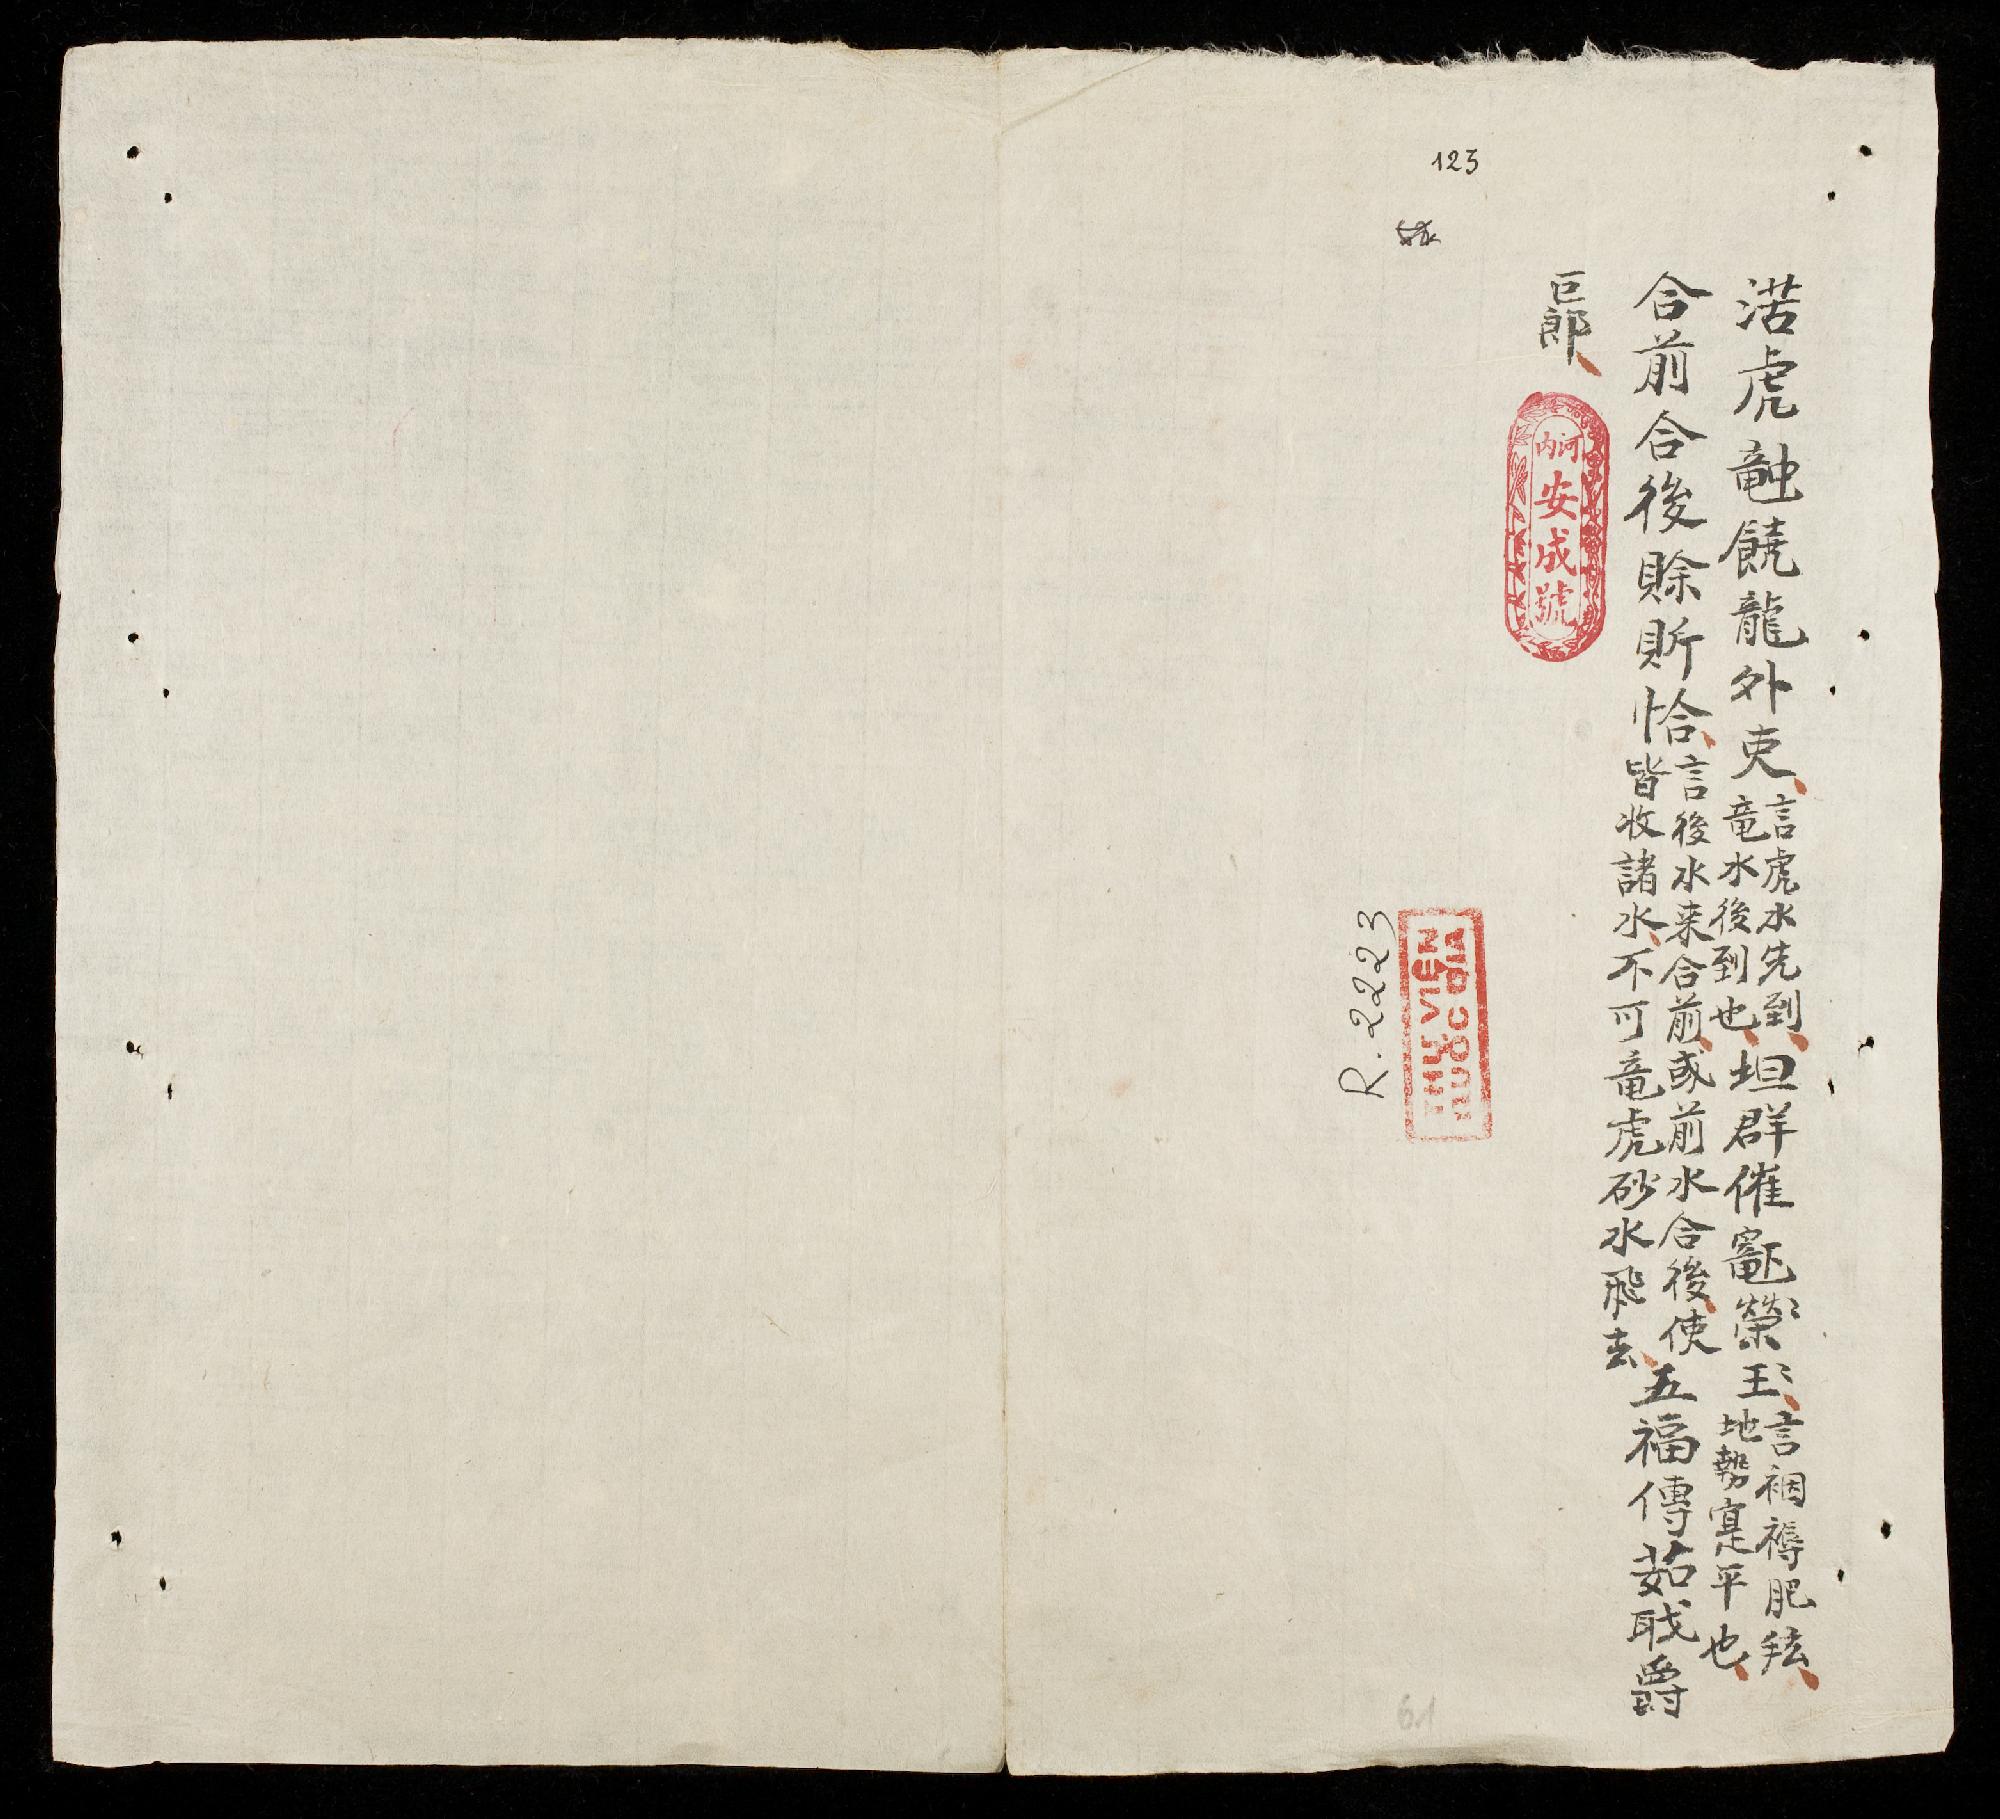 渃虎𪚚饒龍外吏言虎水先到竜水後到也坦群催竈榮〻王〻言裀褥肥𢫝地勢寔平也
合前合後賒斯恰言後水来合前或前水合後使皆收諸水不可竜虎砂水飛去五福傳茹職爵
巨郎
河內
安成號
123
R.2223
THƯ VIỆN
QUỐC GIA
61